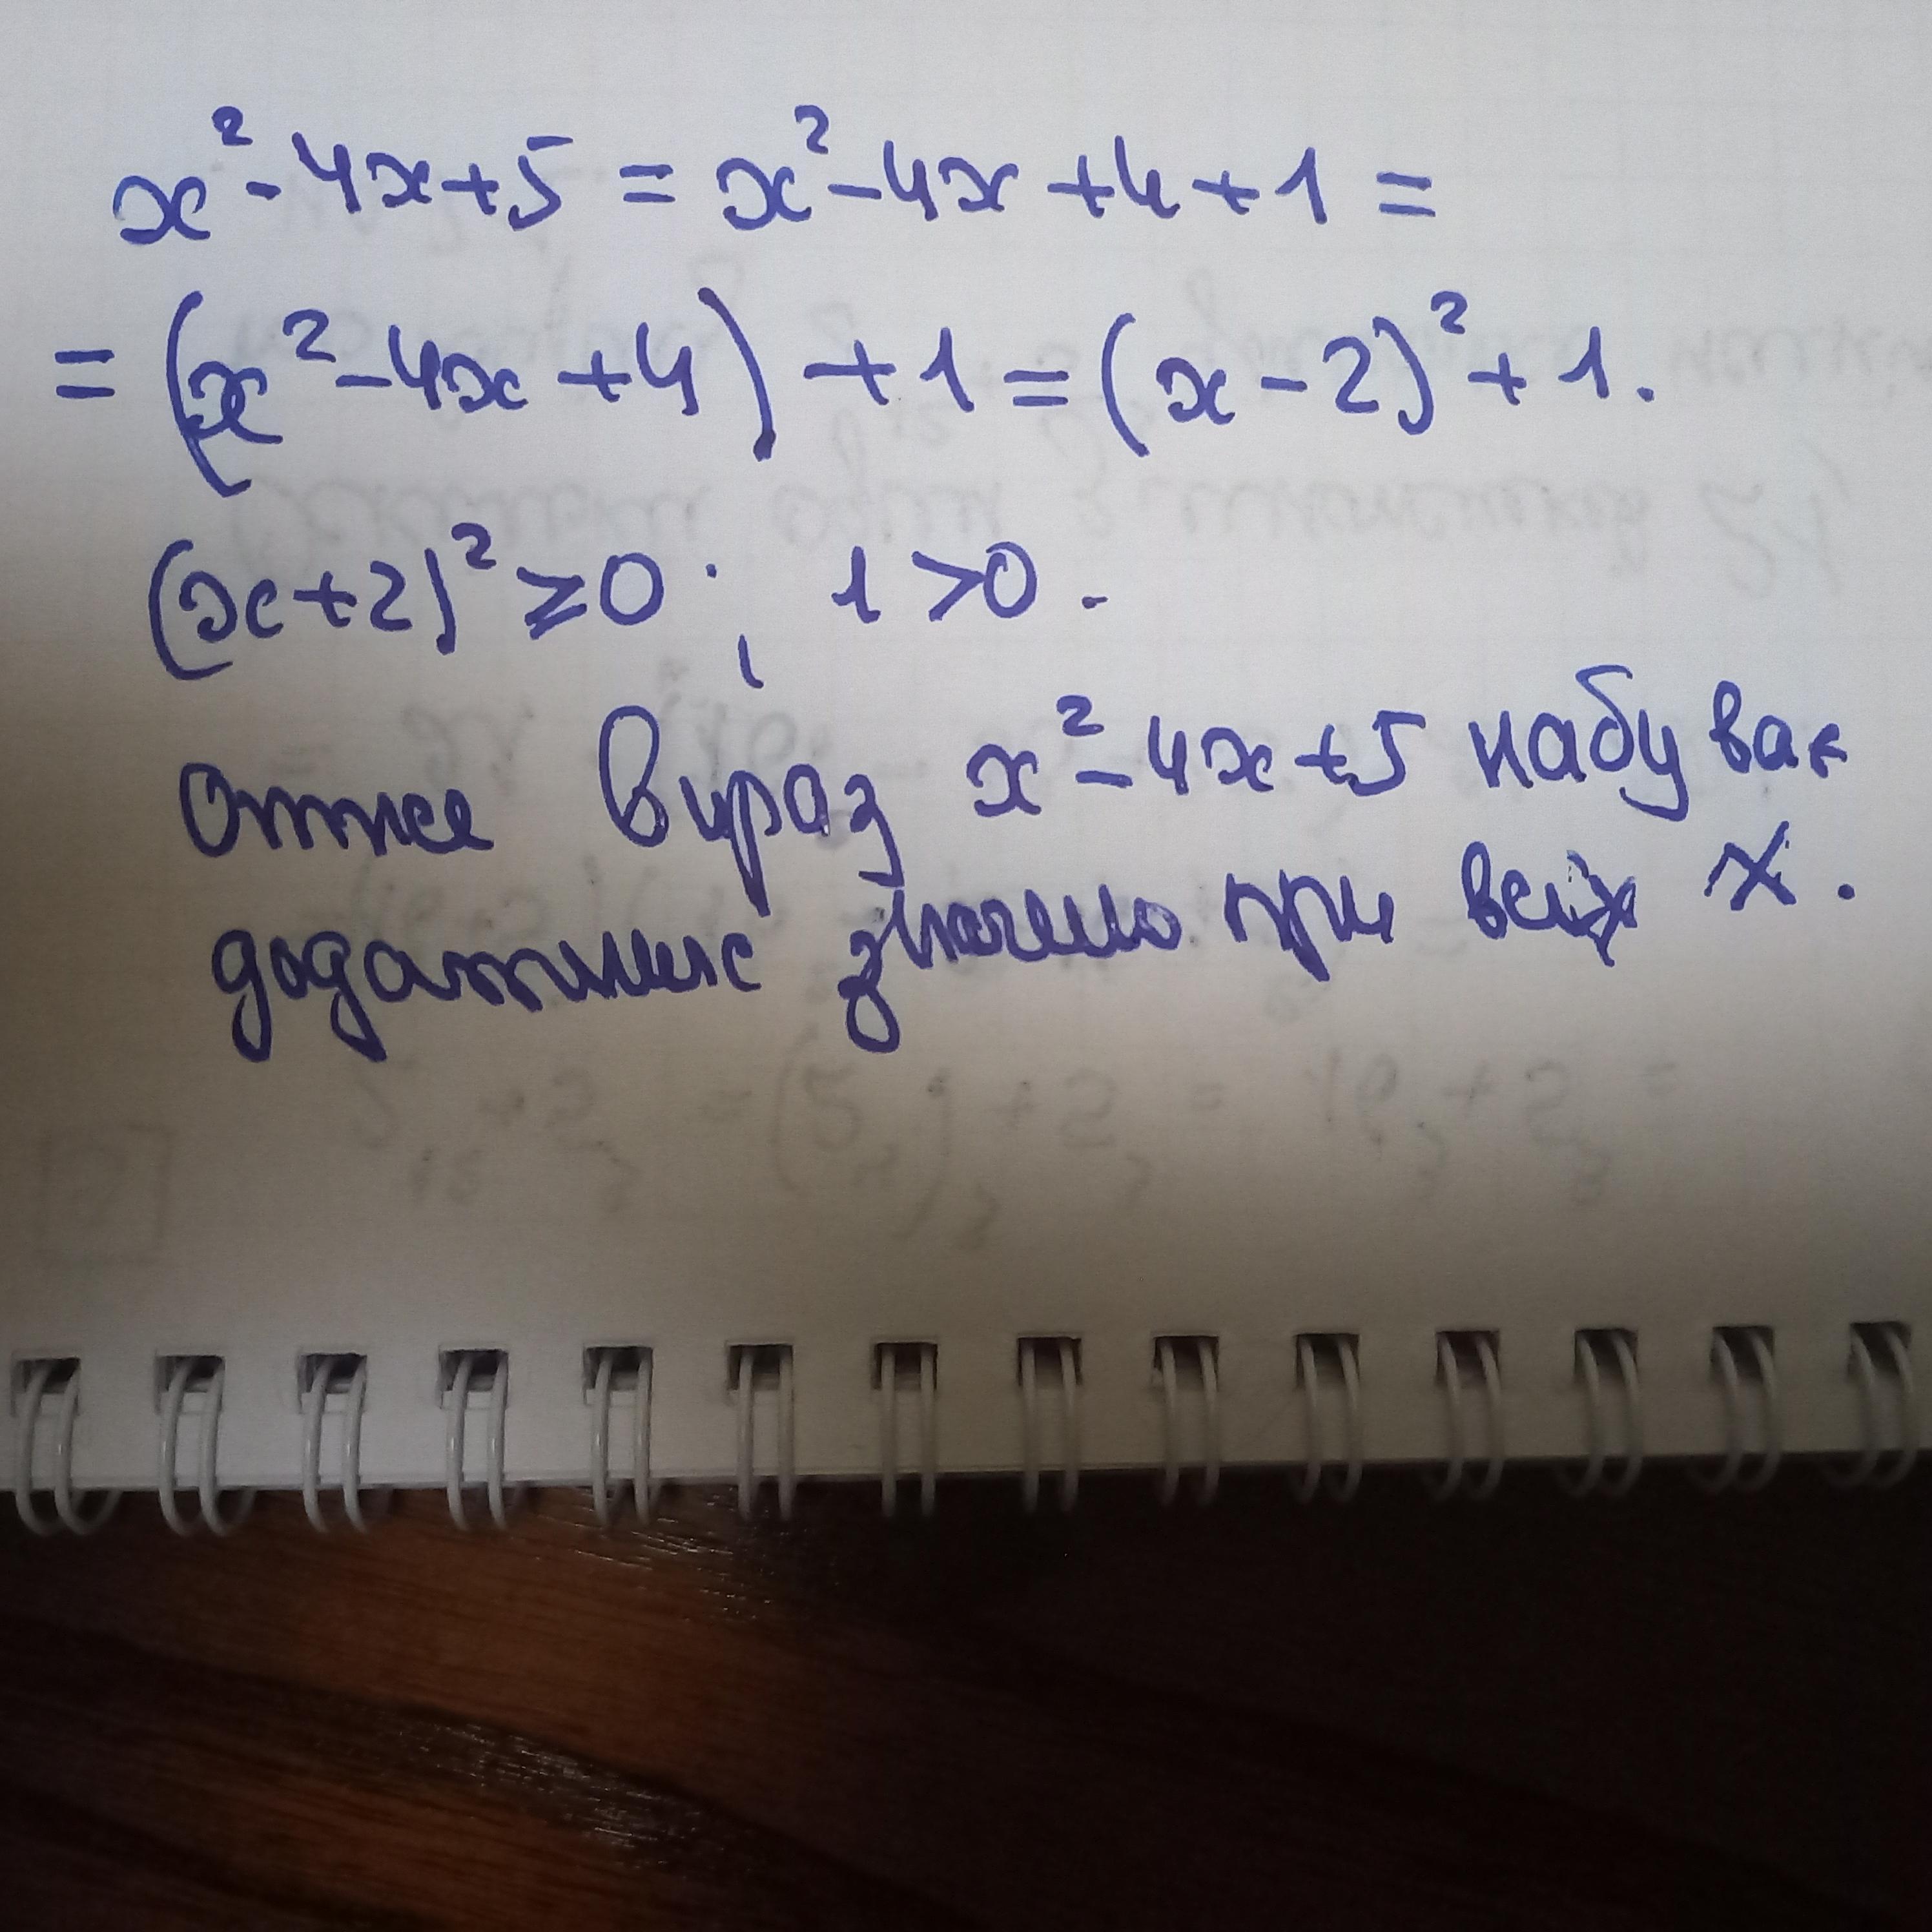 x² - 4x + 5 = x² - 4x + 4 + 1 =
= (x² - 4x + 4) + 1 = (x - 2)² + 1.
(x + 2)² ≥ 0; 1 > 0.
Отже вираз x² - 4x + 5 набуває
додатних значень при всіх x.